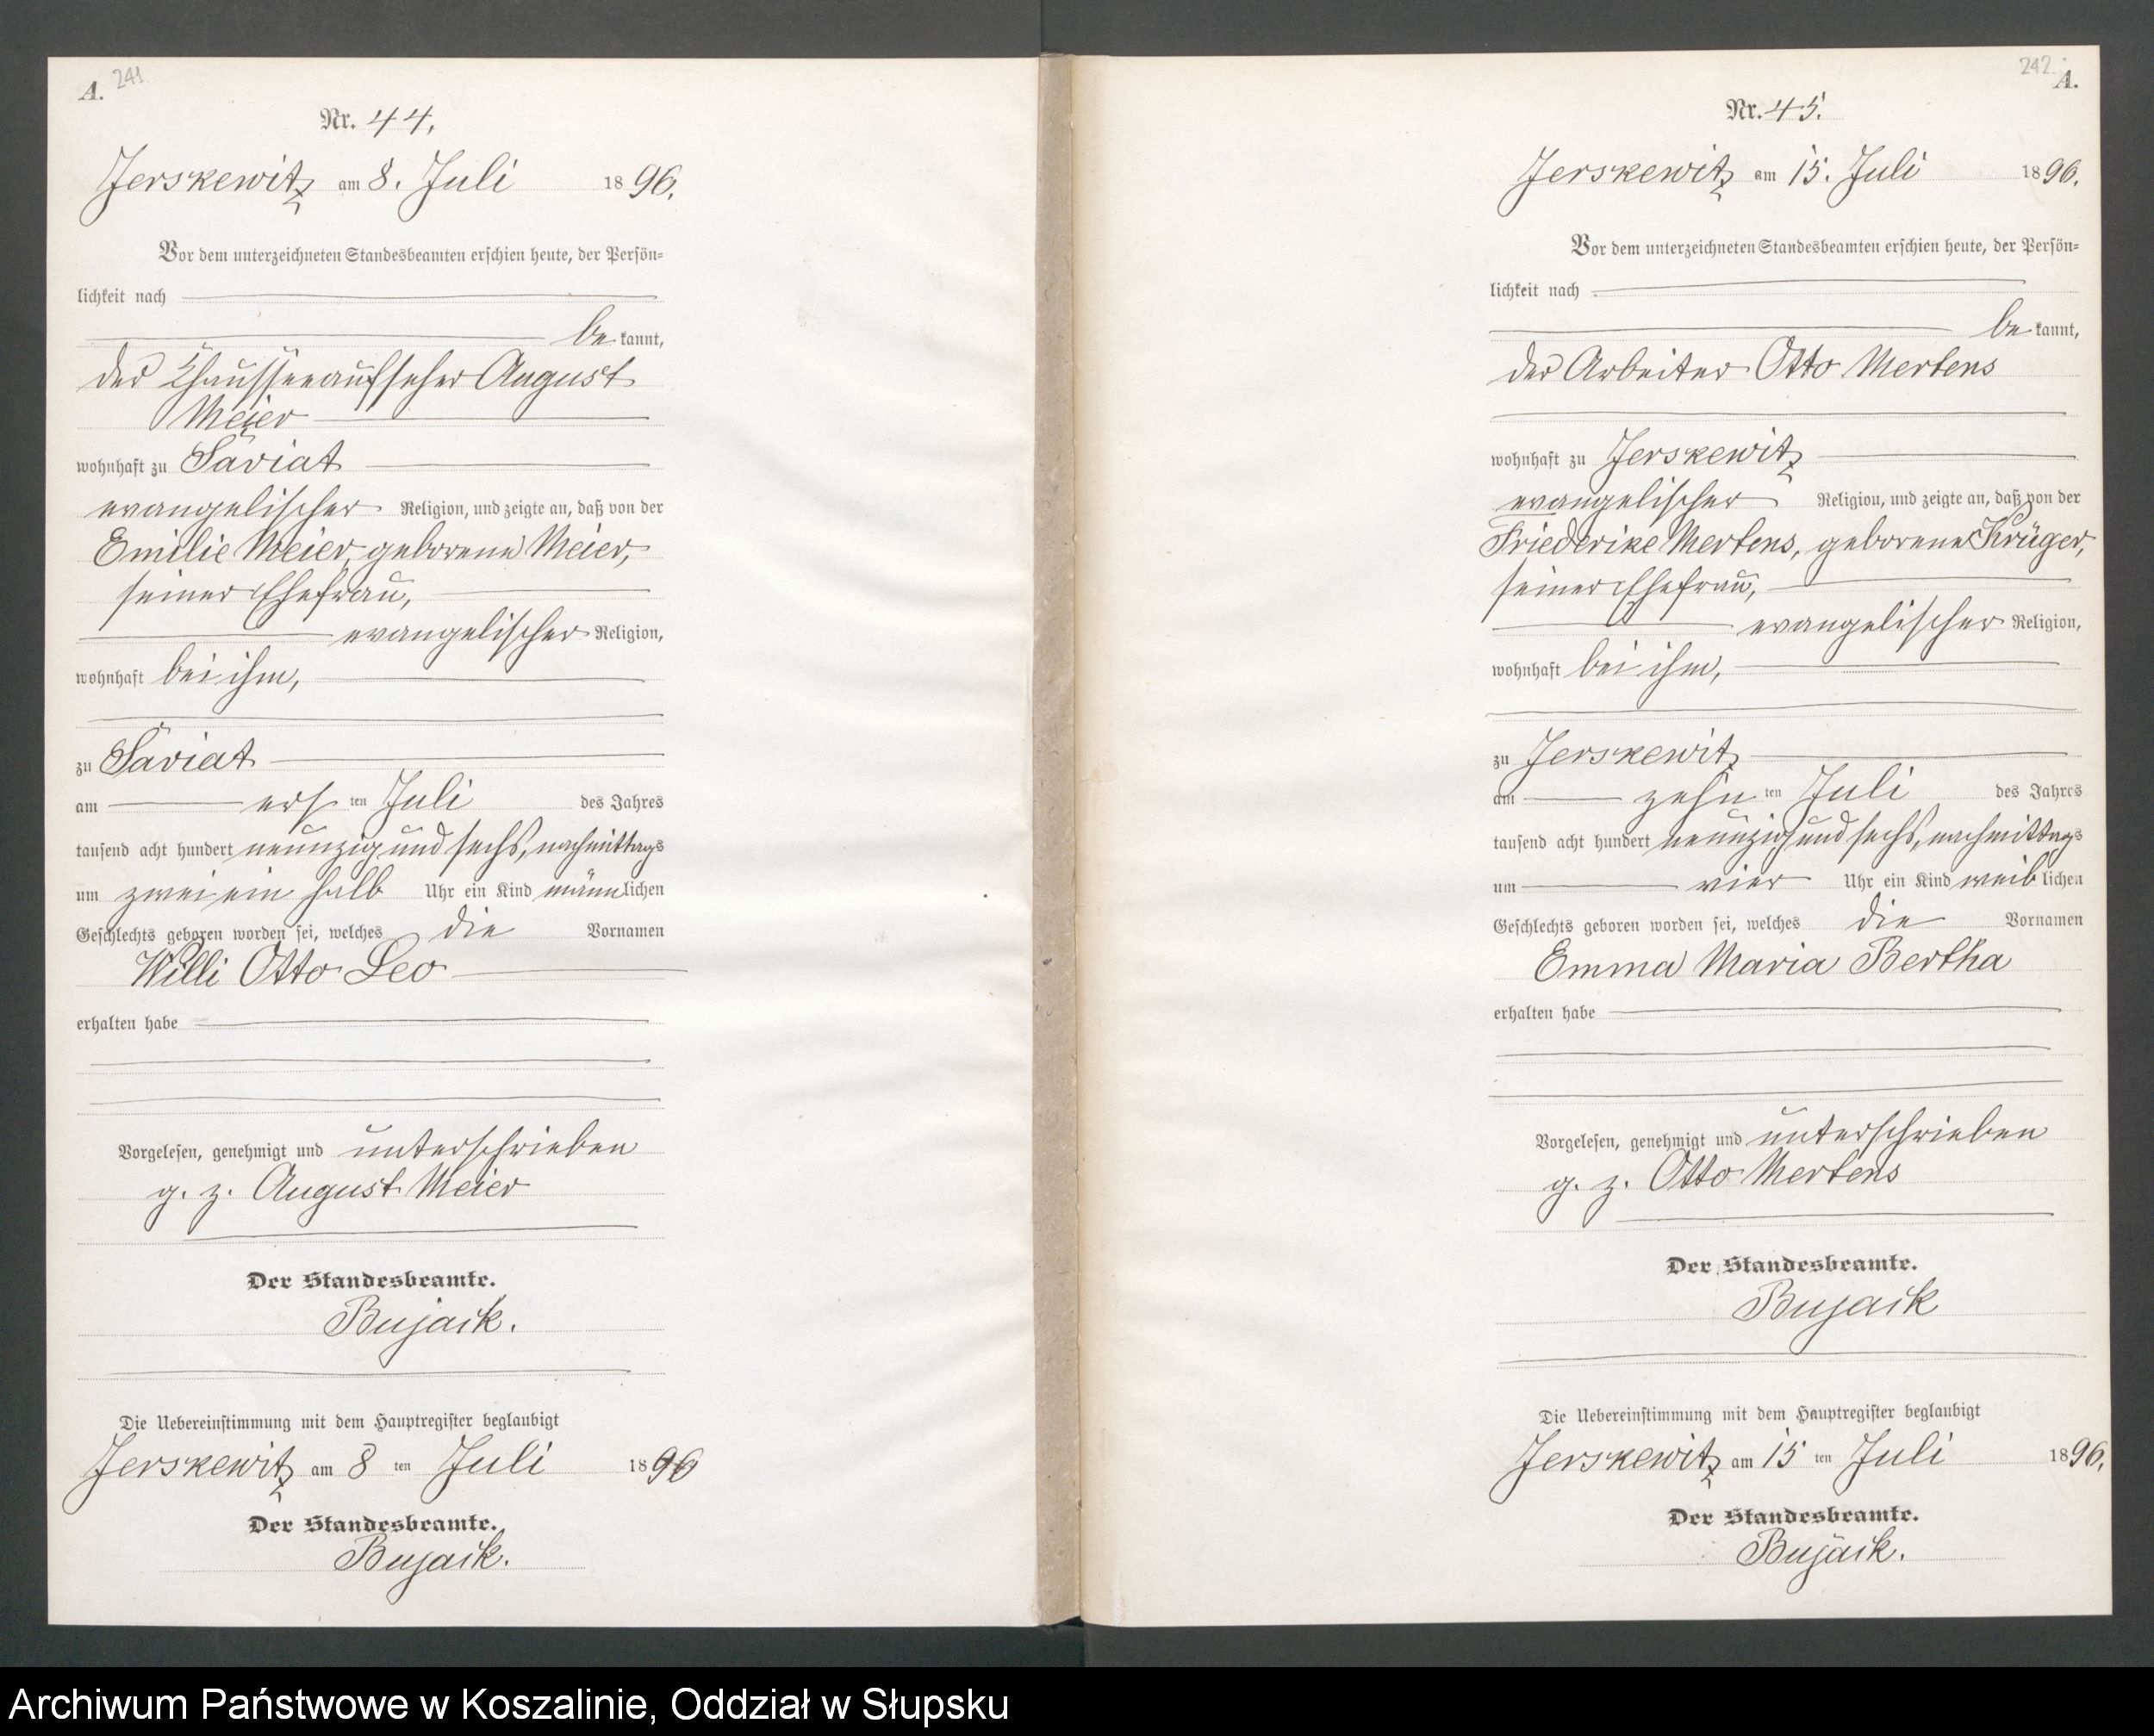 A. 241.
Nr. 44.
Jerskewitz am 8. Juli 1896.
Vor dem unterzeichneten Standesbeamten erschien heute, der Persön-
lichkeit nach
bekannt,
der Chausseeaufseher August
Meier
wohnhaft zu Saviat
evangelischer Religion, und zeigte an, daß von der
Emilie Meier, geborene Meier,
seiner Ehefrau,
evangelischer Religion,
wohnhaft bei ihm,
zu Saviat
am ersten Juli des Jahres
tausend acht hundert neunzig und sechs, nachmittags
um zwei ein halb Uhr ein Kind männlichen
Geschlechts geboren worden sei, welches die Vornamen
Willi Otto Leo
erhalten habe
Vorgelesen, genehmigt und unterschrieben
g. z. August Meier
Der Standesbeamte.
Bujack.
Die Uebereinstimmung mit dem Hauptregister beglaubigt
Jerskewitz am 8 ten Juli 1896
Der Standesbeamte.
Bujack.
242. A.
Nr. 45.
Jerskewitz am 15. Juli 1896.
Vor dem unterzeichneten Standesbeamten erschien heute, der Persön-
lichkeit nach
bekannt,
der Arbeiter Otto Mertens
wohnhaft zu Jerskewitz
evangelischer Religion, und zeigte an, daß von der
Friederike Mertens, geborene Krüger,
seiner Ehefrau,
evangelischer Religion,
wohnhaft bei ihm,
zu Jerskewitz
am zehnten Juli des Jahres
tausend acht hundert neunzig und sechs, nachmittags
um vier Uhr ein Kind weiblichen
Geschlechts geboren worden sei, welches die Vornamen
Emma Maria Bertha
erhalten habe
Vorgelesen, genehmigt und unterschrieben
g. z. Otto Mertens
Der Standesbeamte.
Bujack
Die Uebereinstimmung mit dem Hauptregister beglaubigt
Jerskewitz am 15 ten Juli 1896.
Der Standesbeamte.
Bujack.
Archiwum Państwowe w Koszalinie, Oddział w Słupsku